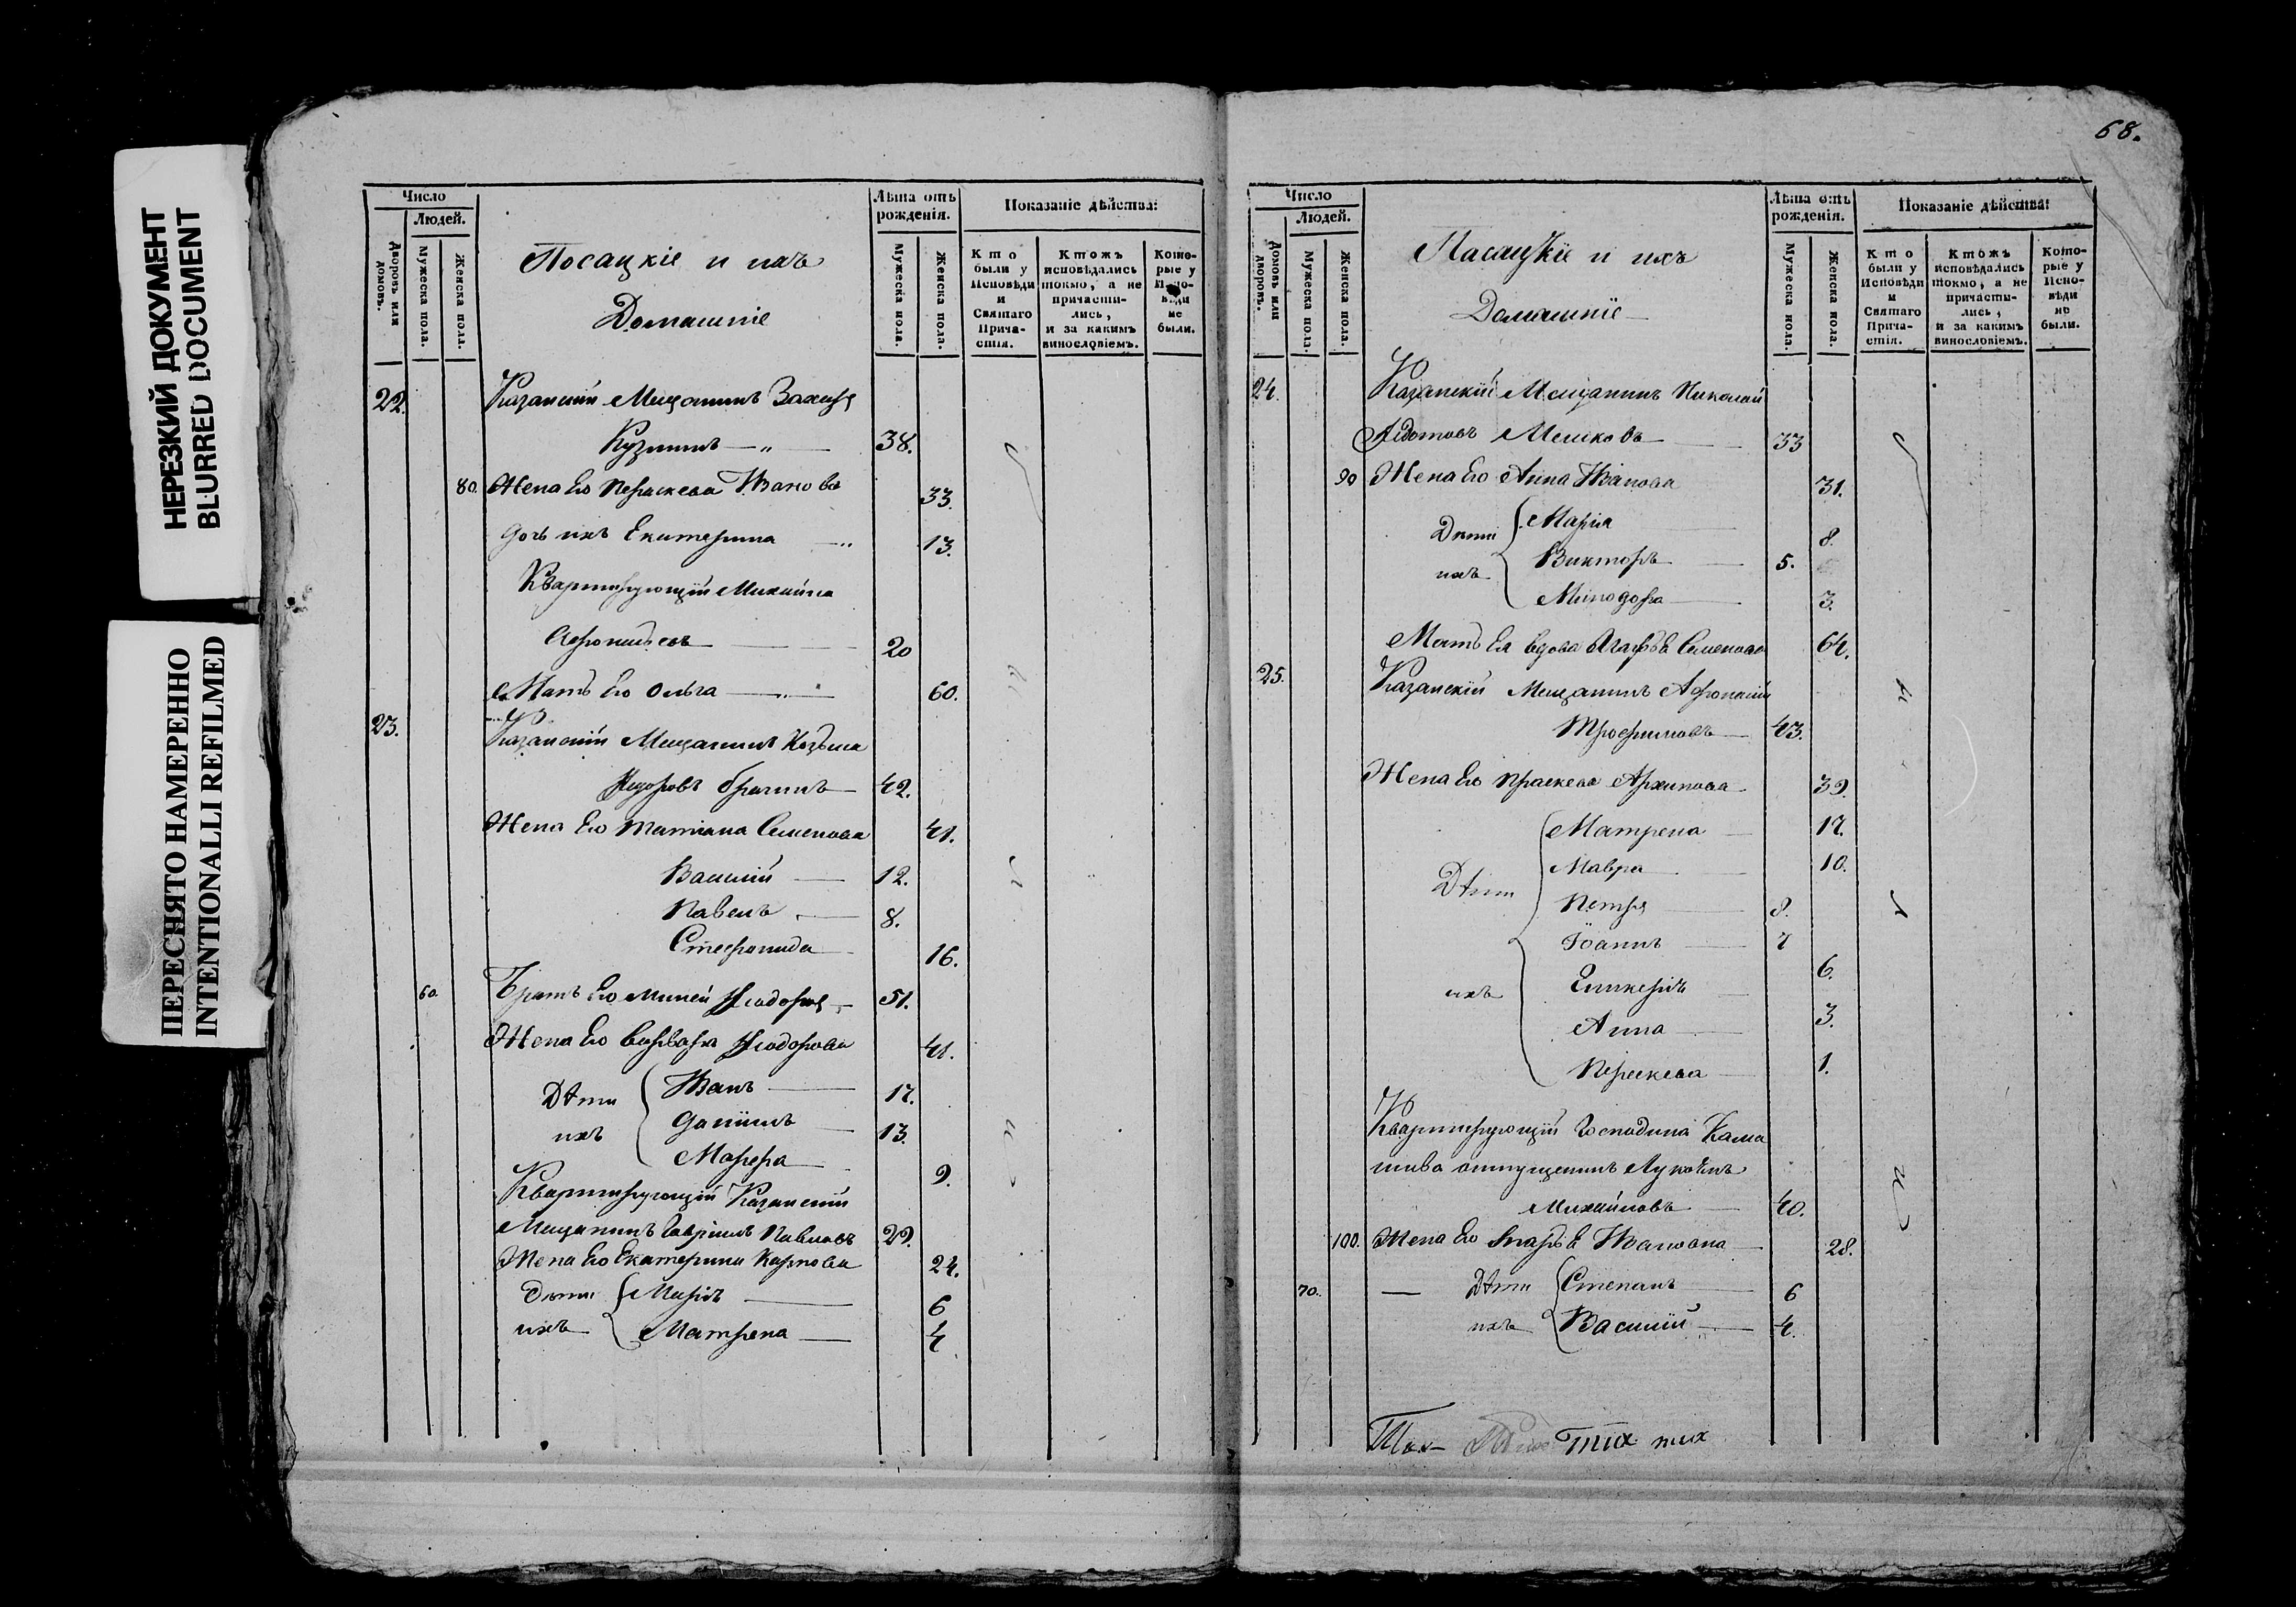 НЕРЕЗКИЙ ДОКУМЕНТ
BLURRED DOCUMENT
ПЕРЕСНЯТО НАМЕРЕННО
INTENTIONALLI REFILMED
Число
Людей.
Дворовъ или домовъ.
Мужеска пола.
Женска пола.
Посацкіе и ихъ
Домашніе
Лѣта отъ рожденія.
Мужеска пола.
Женска пола.
Показаніе дѣйства:
Кто были у Исповѣди и Святаго Причастія.
Ктожъ исповѣдались токмо, а не причастились, и за какимъ винословіемъ.
Которые у Исповѣди не были.
22. Казанский Мещанинъ Захаръ
Кузминъ — „ — 38.
80. Жена Его Параскева Иванова 33.
дочь ихъ Екатерина — „ 13.
Квартирующій Михаила
20
Мать Его Ольга — „ — 60.
23. Казанский Мещанинъ Козьма
Федоровъ — 42.
Жена Его Татиана Семенова 41.
Василій — 12.
Павелъ — 8.
Стефанида 16.
60. Братъ Его Миней — 51.
Жена Его Варвара Феодорова 41.
Дѣти Иванъ — 17.
ихъ Даніилъ — 13.
Марфа 9.
Квартирующій Казанский
Мещанинъ Гавріилъ Павловъ 29.
Жена Его Екатерина Карпова 24.
Дѣти Марія — 6
ихъ Матрена — 4
68.
Число
Людей.
Домовъ или дворовъ.
Мужеска пола.
Женска пола.
Пасацкіе и ихъ
Домашніе —
Лѣта отъ рожденія.
Мужеска пола.
Женска пола.
Показаніе дѣйства:
Кто были у Исповѣди и Святаго Причастія.
Ктожъ исповѣдались токмо, а не причастились, и за какимъ винословіемъ.
Которые у Исповѣди не были.
24. Казанскій Мещанинъ Николай
Мешковъ — 33
90 Жена Его Анна Иванова 31.
Дѣти Марія 8.
ихъ Викторъ — 5.
Минодора — 3.
Мать Ея вдова Агафья Семенова 64.
25. Казанскій Мещанинъ
Трофимовъ — 43.
Жена Его Праскева Архипова 39.
Дѣти Матрена — 17.
Мавра 10.
Петръ — 8.
Іоаннъ — 7
ихъ Гликерія — 6.
Анна — 3.
Параскева — 1.
Квартирующій Господина Кама
шева отпущенникъ
Михайловъ — 40.
100. Жена Его Иванова — 28.
70. — Дѣти Степанъ — 6
ихъ Василій — 4.